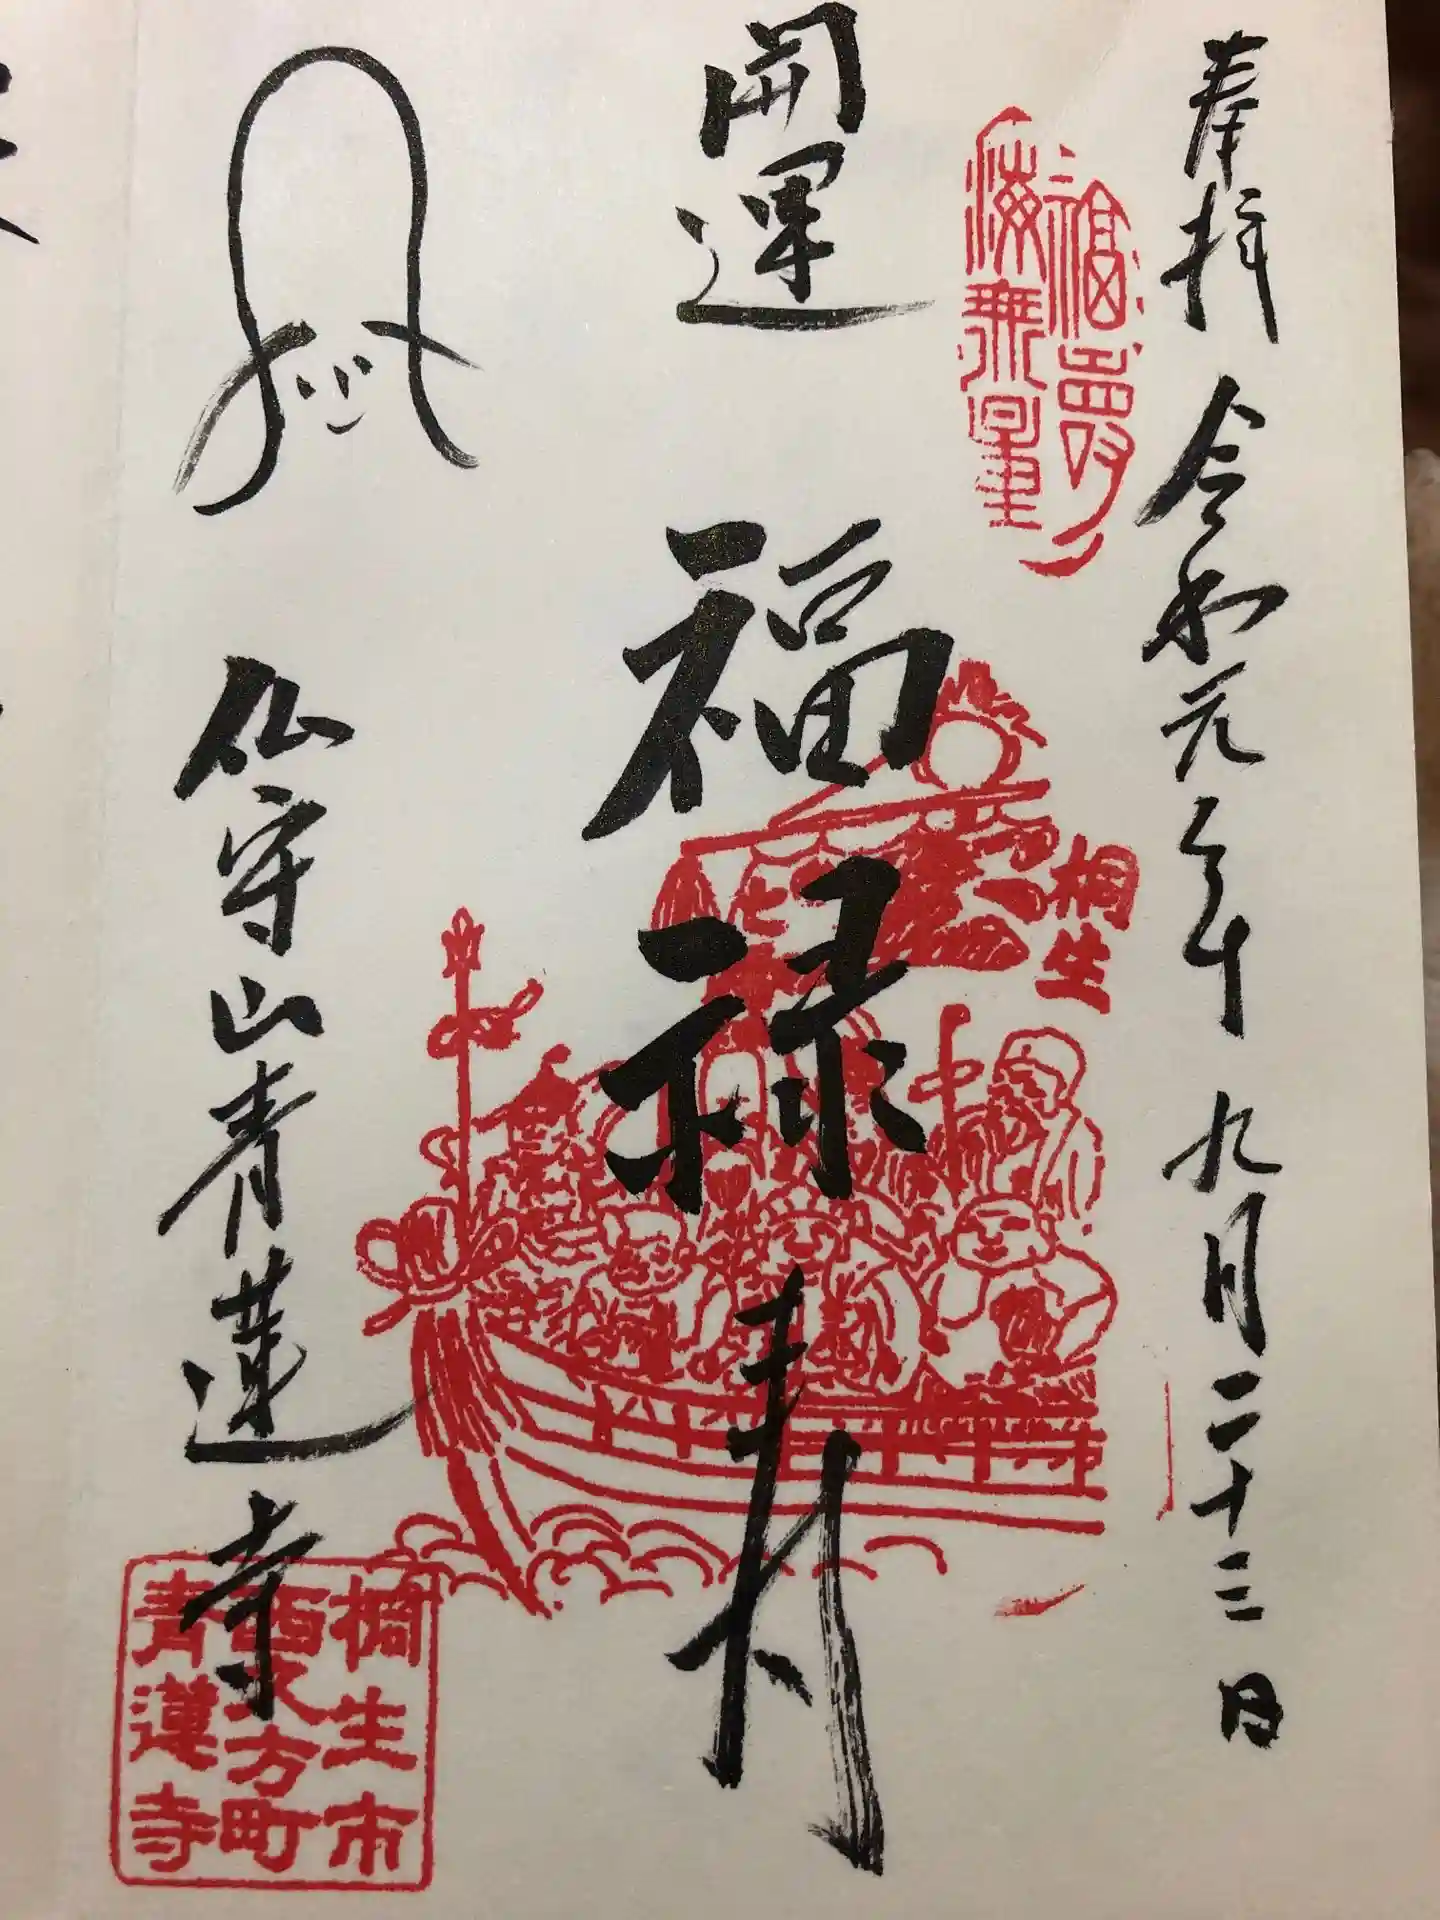 奉拝 令和元年 九月二十三日
福聚海無量
開運 福禄寿
桐生
七
仙守山青蓮寺
桐生市
西久方町
青蓮寺